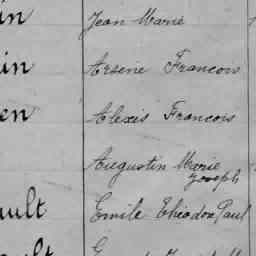 in Jean Marie
in Arsene Francois
en Alexis Francois
Augustin Marie
Joseph
ault Emile Théodore Paul